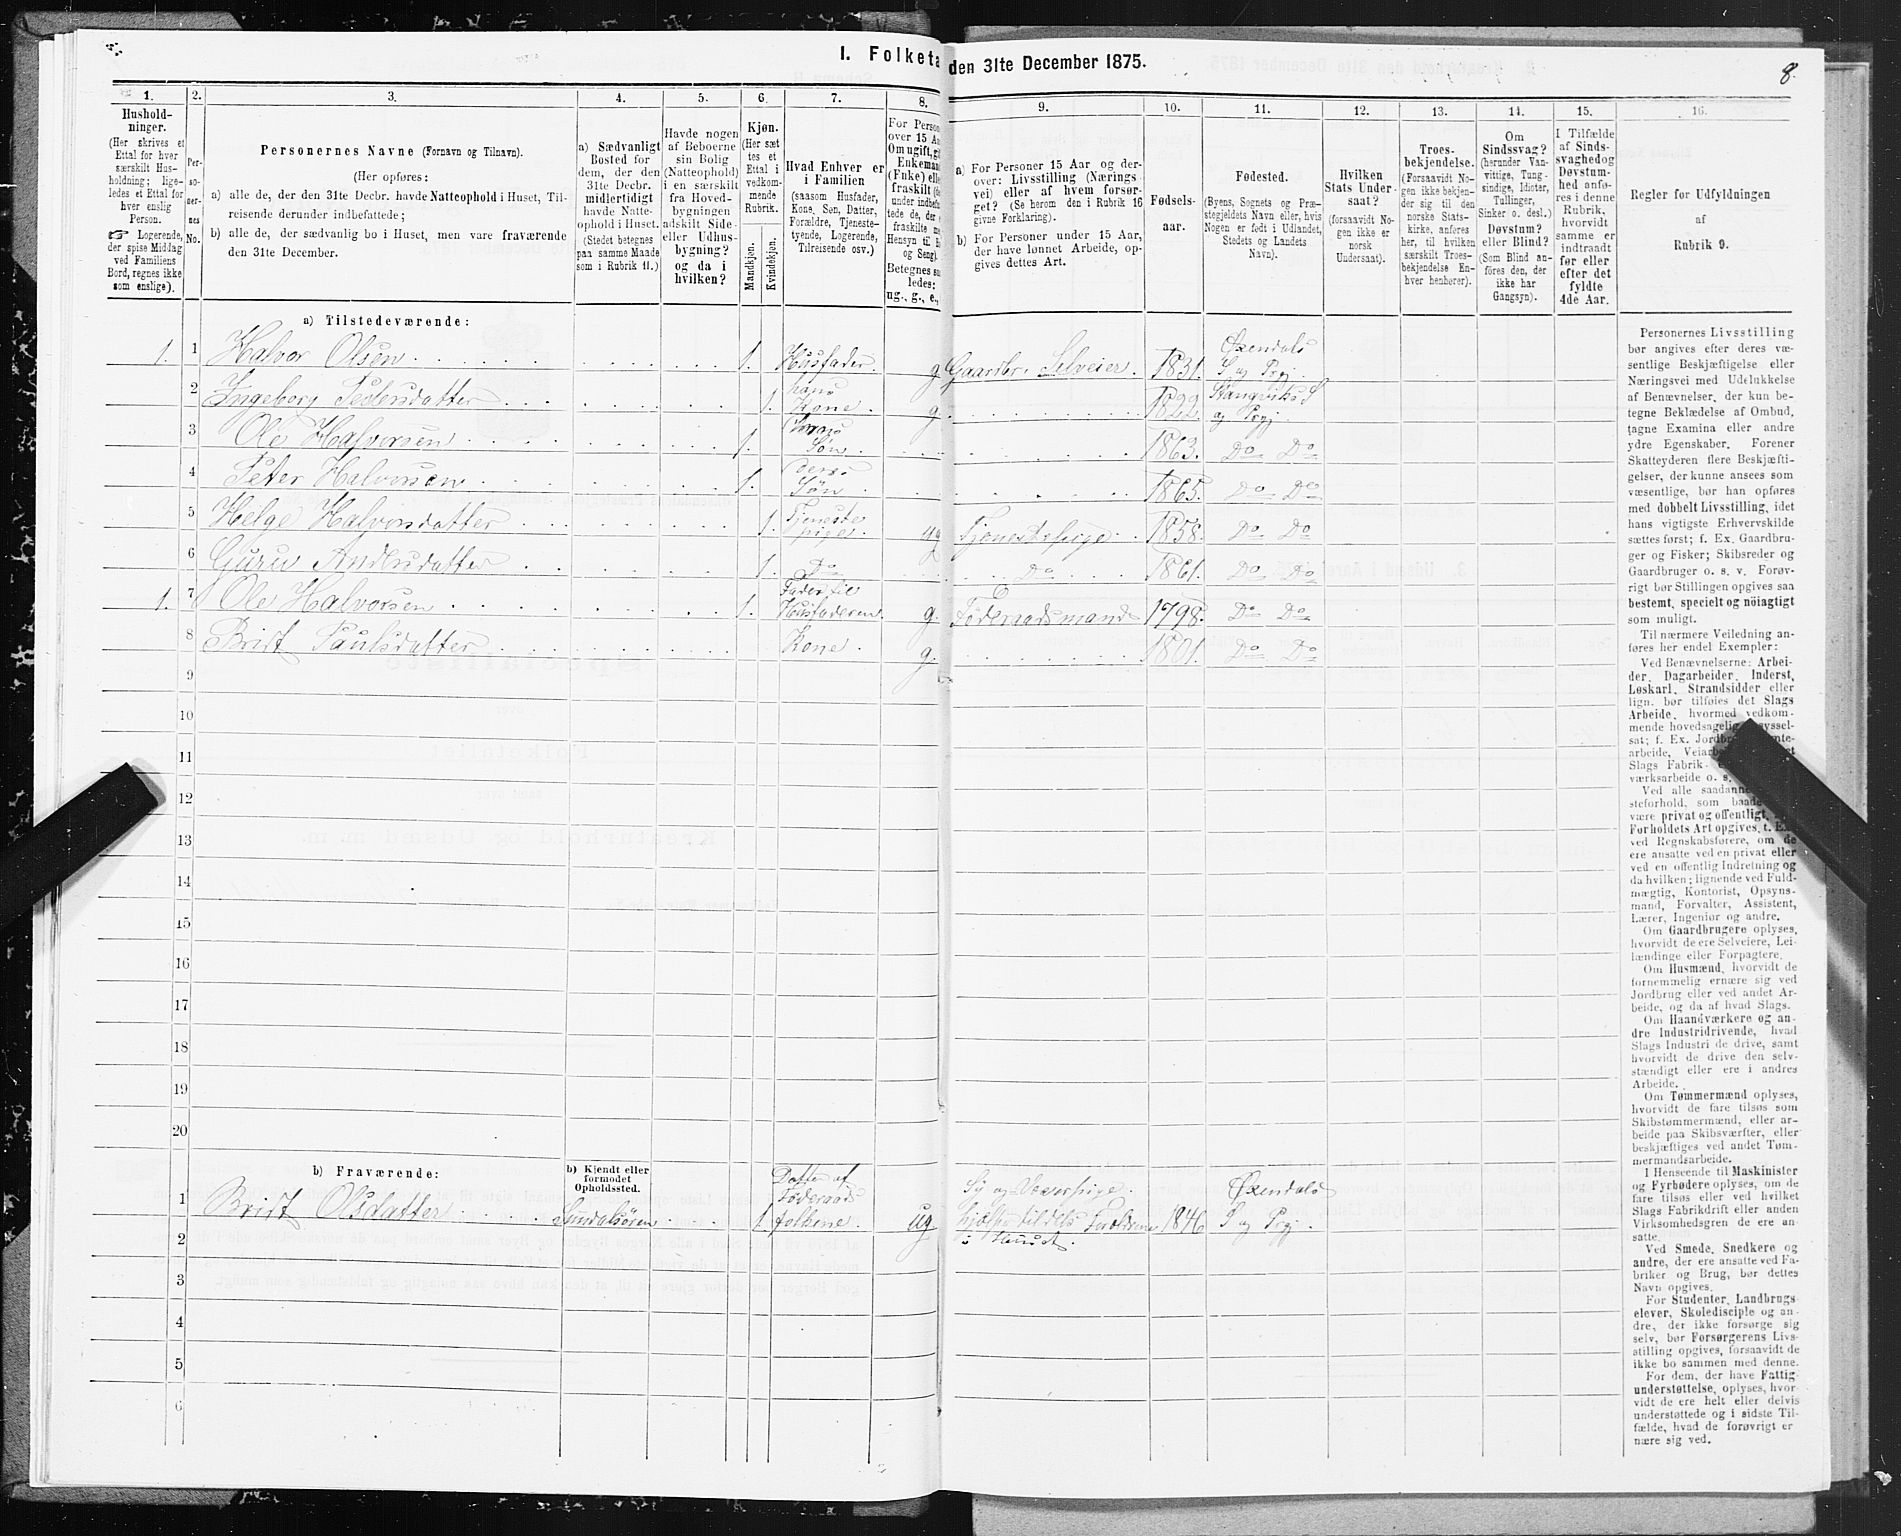 I. Folketa den 31te December 1875.
8.
1.
Hushold-
ninger.
(Her skrives et
Ettal for hver
særskilt Hus-
holdning; lige-
ledes et Ettal for
hver enslig
Person.
☞ Logerende,
der spise Middag
ved Familiens
Bord, regnes ikke
som enslige).
2.
Per-
so-
ner-
nes
No.
3.
Personernes Navne (Fornavn og Tilnavn).
(Her opføres:
a) alle de, der den 31te Decbr. havde Natteophold i Huset, Til-
reisende derunder indbefattede;
b) alle de, der sædvanlig bo i Huset, men vare fraværende
den 31te December.
4.
a) Sædvanligt
Bosted for
dem, der den
31te Decbr.
midlertidigt
havde Natte-
ophold i Huset.
(Stedet betegnes
paa samme Maade
som i Rubrik 11.)
5.
Havde nogen
af Beboerne
sin Bolig
(Natteophold)
i en særskilt
fra Hoved-
bygningen
adskilt Side-
eller Udhus-
bygning?
og da i
hvilken?
6.
Kjøn.
(Her sæt-
tes et
Ettal i
vedkom-
mende
Rubrik.
Mandkjøn.
Kvindekjøn.
7.
Hvad Enhver er
i Familien
(saasom Husfader,
Kone, Søn, Datter,
Forældre, Tjeneste-
tyende, Logerende,
Tilreisende osv.)
8.
For Person
over 15 Aa
Om ugift, gi
Enkeman
(Enke) elle
fraskilt (
under indbef
tede de, der
fraskilte m
Hensyn til B
og Seng).
Betegnes saa
ledes:
ug., g., e.,
9.
a) For Personer 15 Aar og der-
over: Livsstilling (Nærings-
vei) eller af hvem forsør-
get? (Se herom den i Rubrik 16
givne Forklaring).
b) For Personer under 15 Aar,
der have lønnet Arbeide, op-
gives dettes Art.
10.
Fødsels-
aar.
11.
Fødested.
(Byens, Sognets og Præ-
stegjeldets Navn eller, hvis
Nogen er født i Udlandet,
Stedets og Landets
Navn).
12.
Hvilken
Stats Under-
saat?
(forsaavidt No-
gen ikke er
norsk
Undersaat).
13.
Troes-
bekjendelse.
(Forsaavidt No-
gen ikke bekjen-
der sig til den
norske Stats-
kirke, anføres
her, til hvilken
særskilt Troes-
bekjendelse En-
hver henhører).
14.
Om
Sindssvag?
(herunder Van-
vittige, Tung-
sindige, Idioter,
Tullinger,
Sinker o. desl.)
Døvstum?
eller Blind?
(Som Blind an-
føres den, der
ikke har
Gangsyn).
15.
I Tilfælde
af Sinds-
svaghed og
Døvstum-
hed anfø-
res i denne
Rubrik,
hvorvidt
samme er
indtraadt
før eller
efter det
fyldte
4de Aar.
16.
Regler for Udfyldningen
af
Rubrik 9.
a) Tilstedeværende:
1. 1 Halvor Olsen 1. Husfader. g Gaardbr. Selveier. 1831. Øxendals S og Prgj.
2 Ingeborg Pedersdatter 1. hans Kone. g. 1822. Stangviks S og Prgj.
3 Ole Halvorsen 1. Søn 1863. Do Do
4 Peter Halvorsen 1. deres Søn 1865. Do Do
5 Helge Halvorsdatter 1. Tjeneste pige. ug Tjenestepige. 1858. Do Do
6 Guru Andersdatter 1. Do Do 1861. Do Do
1. 7 Ole Halvorsen 1. Fader til Husfaderen. g. Føderaadsmand 1798. Do Do
8 Brit Paulsdatter Kone. g. 1801. Do Do
9
10
11
12
13
14
15
16
17
18
19
20
b) Fraværende:
b) Kjendt eller
formodet
Opholdssted.
1 Brit Olsdatter Sundalsøren 1 Datter af Føderaads folkene. ug Sy og Væverpige. hjælper tildels Forældrene i Huset. 1846 Øxendals S og Prgj.
2
3
4
5
6
Personernes Livsstilling
bør angives efter deres væ-
sentlige Beskjæftigelse eller
Næringsvei med Udelukkelse
af Benævnelser, der kun be-
tegne Beklædelse af Ombud,
tagne Examina eller andre
ydre Egenskaber. Forener
Skatteyderen flere Beskjæfti-
gelser, der kunne ansees som
væsentlige, bør han opføres
med dobbelt Livsstilling, idet
hans vigtigste Erhvervskilde
sættes først; f. Ex. Gaardbru-
ger og Fisker; Skibsreder og
Gaardbruger o. s. v. Forøv-
rigt bør Stillingen opgives saa
bestemt, specielt og nöiagtigt
som muligt.
Til nærmere Veiledning an-
føres her endel Exempler:
Ved Benævnelserne: Arbei-
der, Dagarbeider, Inderst,
Løskarl, Strandsidder eller
lign. bør tilføies det Slags
Arbeide, hvormed vedkom-
mende hovedsagelig sysssel-
sat; f. Ex. Jordbr mte-
arbeide, Veiarbe
Slags Fabrik-
værksarbeide o. s.
Ved alle saadanne
steforhold, som baade
være privat og offentligt,
Forholdets Art opgives, t. Ex.
ved Regnskabsførere, om de
ere ansatte ved en privat eller
ved en offentlig Indretning og
da hvilken; lignende ved Fuld-
mægtig, Kontorist, Opsyns-
mand, Forvalter, Assistent,
Lærer, Ingeniør og andre.
Om Gaardbrugere oplyses,
hvorvidt de ere Selveiere, Lei-
lændinge eller Forpagtere.
Om Husmænd, hvorvidt de
fornemmelig ernære sig ved
Jordbrug eller ved andet Ar-
beide, og da af hvad Slags.
Om Haandværkere og an-
dre Industridrivende, hvad
Slags Industri de drive, samt
hvorvidt de drive den selv-
stændigt eller ere i andres
Arbeide.
Om Tømmermænd oplyses,
hvorvidt de fare tilsøs som
Skibstømmermænd, eller ar-
beide paa Skibsværfter, eller
beskjæftiges ved andet Tøm-
mermandsarbeide.
I Henseende til Maskinister
og Fyrbødere oplyses, om de
fare tilsøs eller ved hvilket
Slags Fabrikdrift eller anden
Virksomhedsgren de ere an-
satte.
Ved Smede, Snedkere og
andre, der ere ansatte ved Fa-
briker og Brug, bør dettes
Navn opgives.
For Studenter, Landbrugs-
elever, Skoledisciple og an-
dre, der ikke forsørge sig
selv, bør Forsørgerens Livs-
stilling opgives, forsaavidt de
ikke bo sammen med denne.
For dem, der have Fattig-
understøttelse, oplyses, hvor-
vidt de ere helt eller delvis
understøttede og i sidste Til-
fælde, hvad de forøvrigt er
nære sig ved.